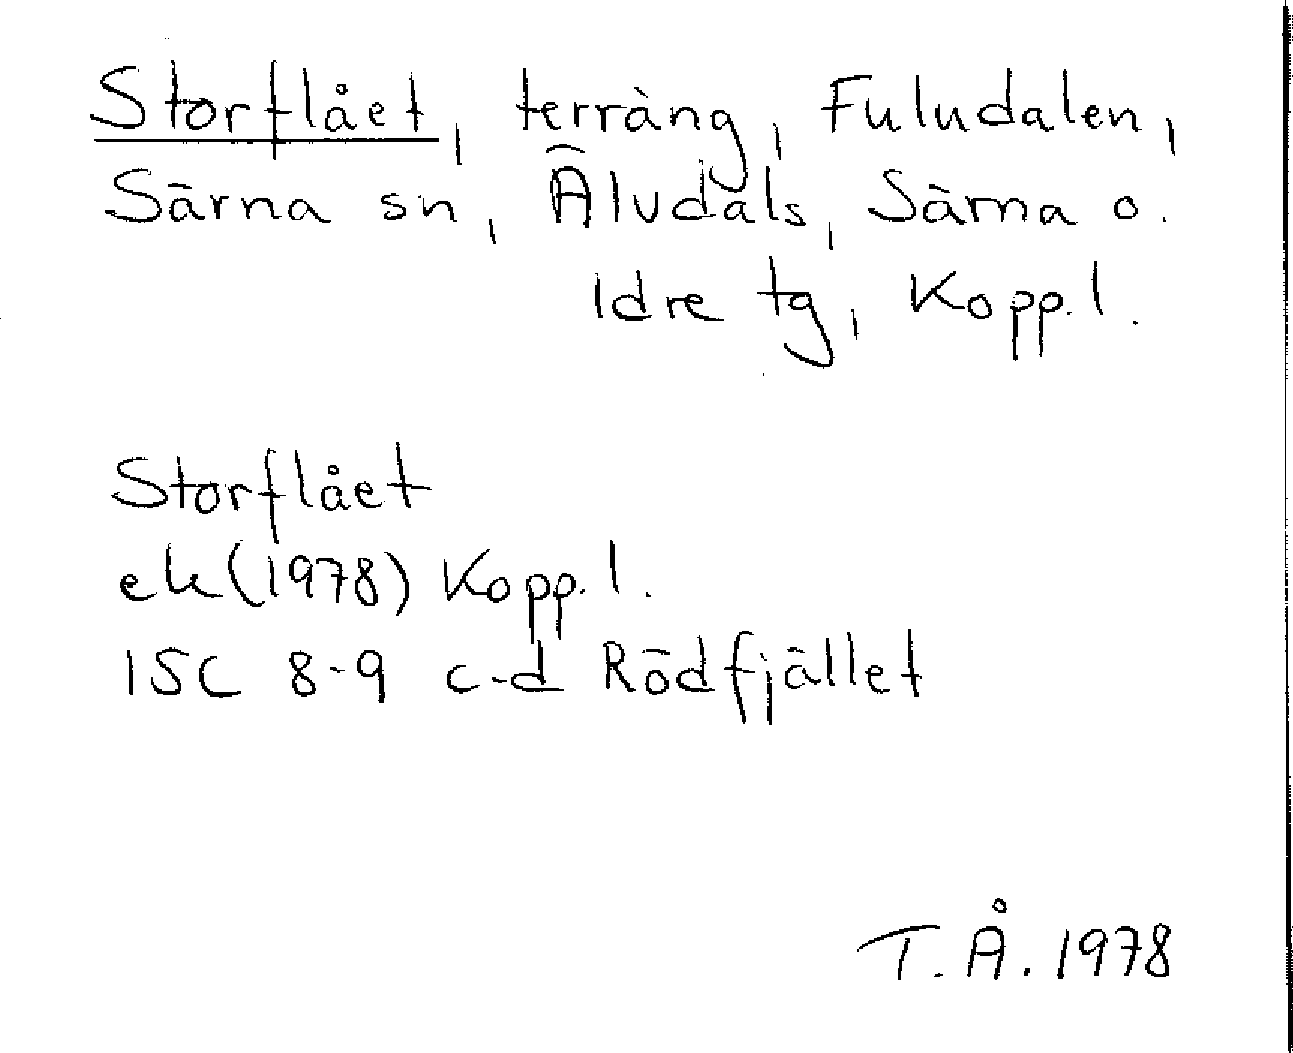 Storflået, terräng, Fuludalen,
Särna sn, Älvdals, Särna o.
Idre tg, Kopp. l.
Storflået
ek (1978) Kopp. l.
15C 8-9 c-d Rödfjället
T. Å. 1978